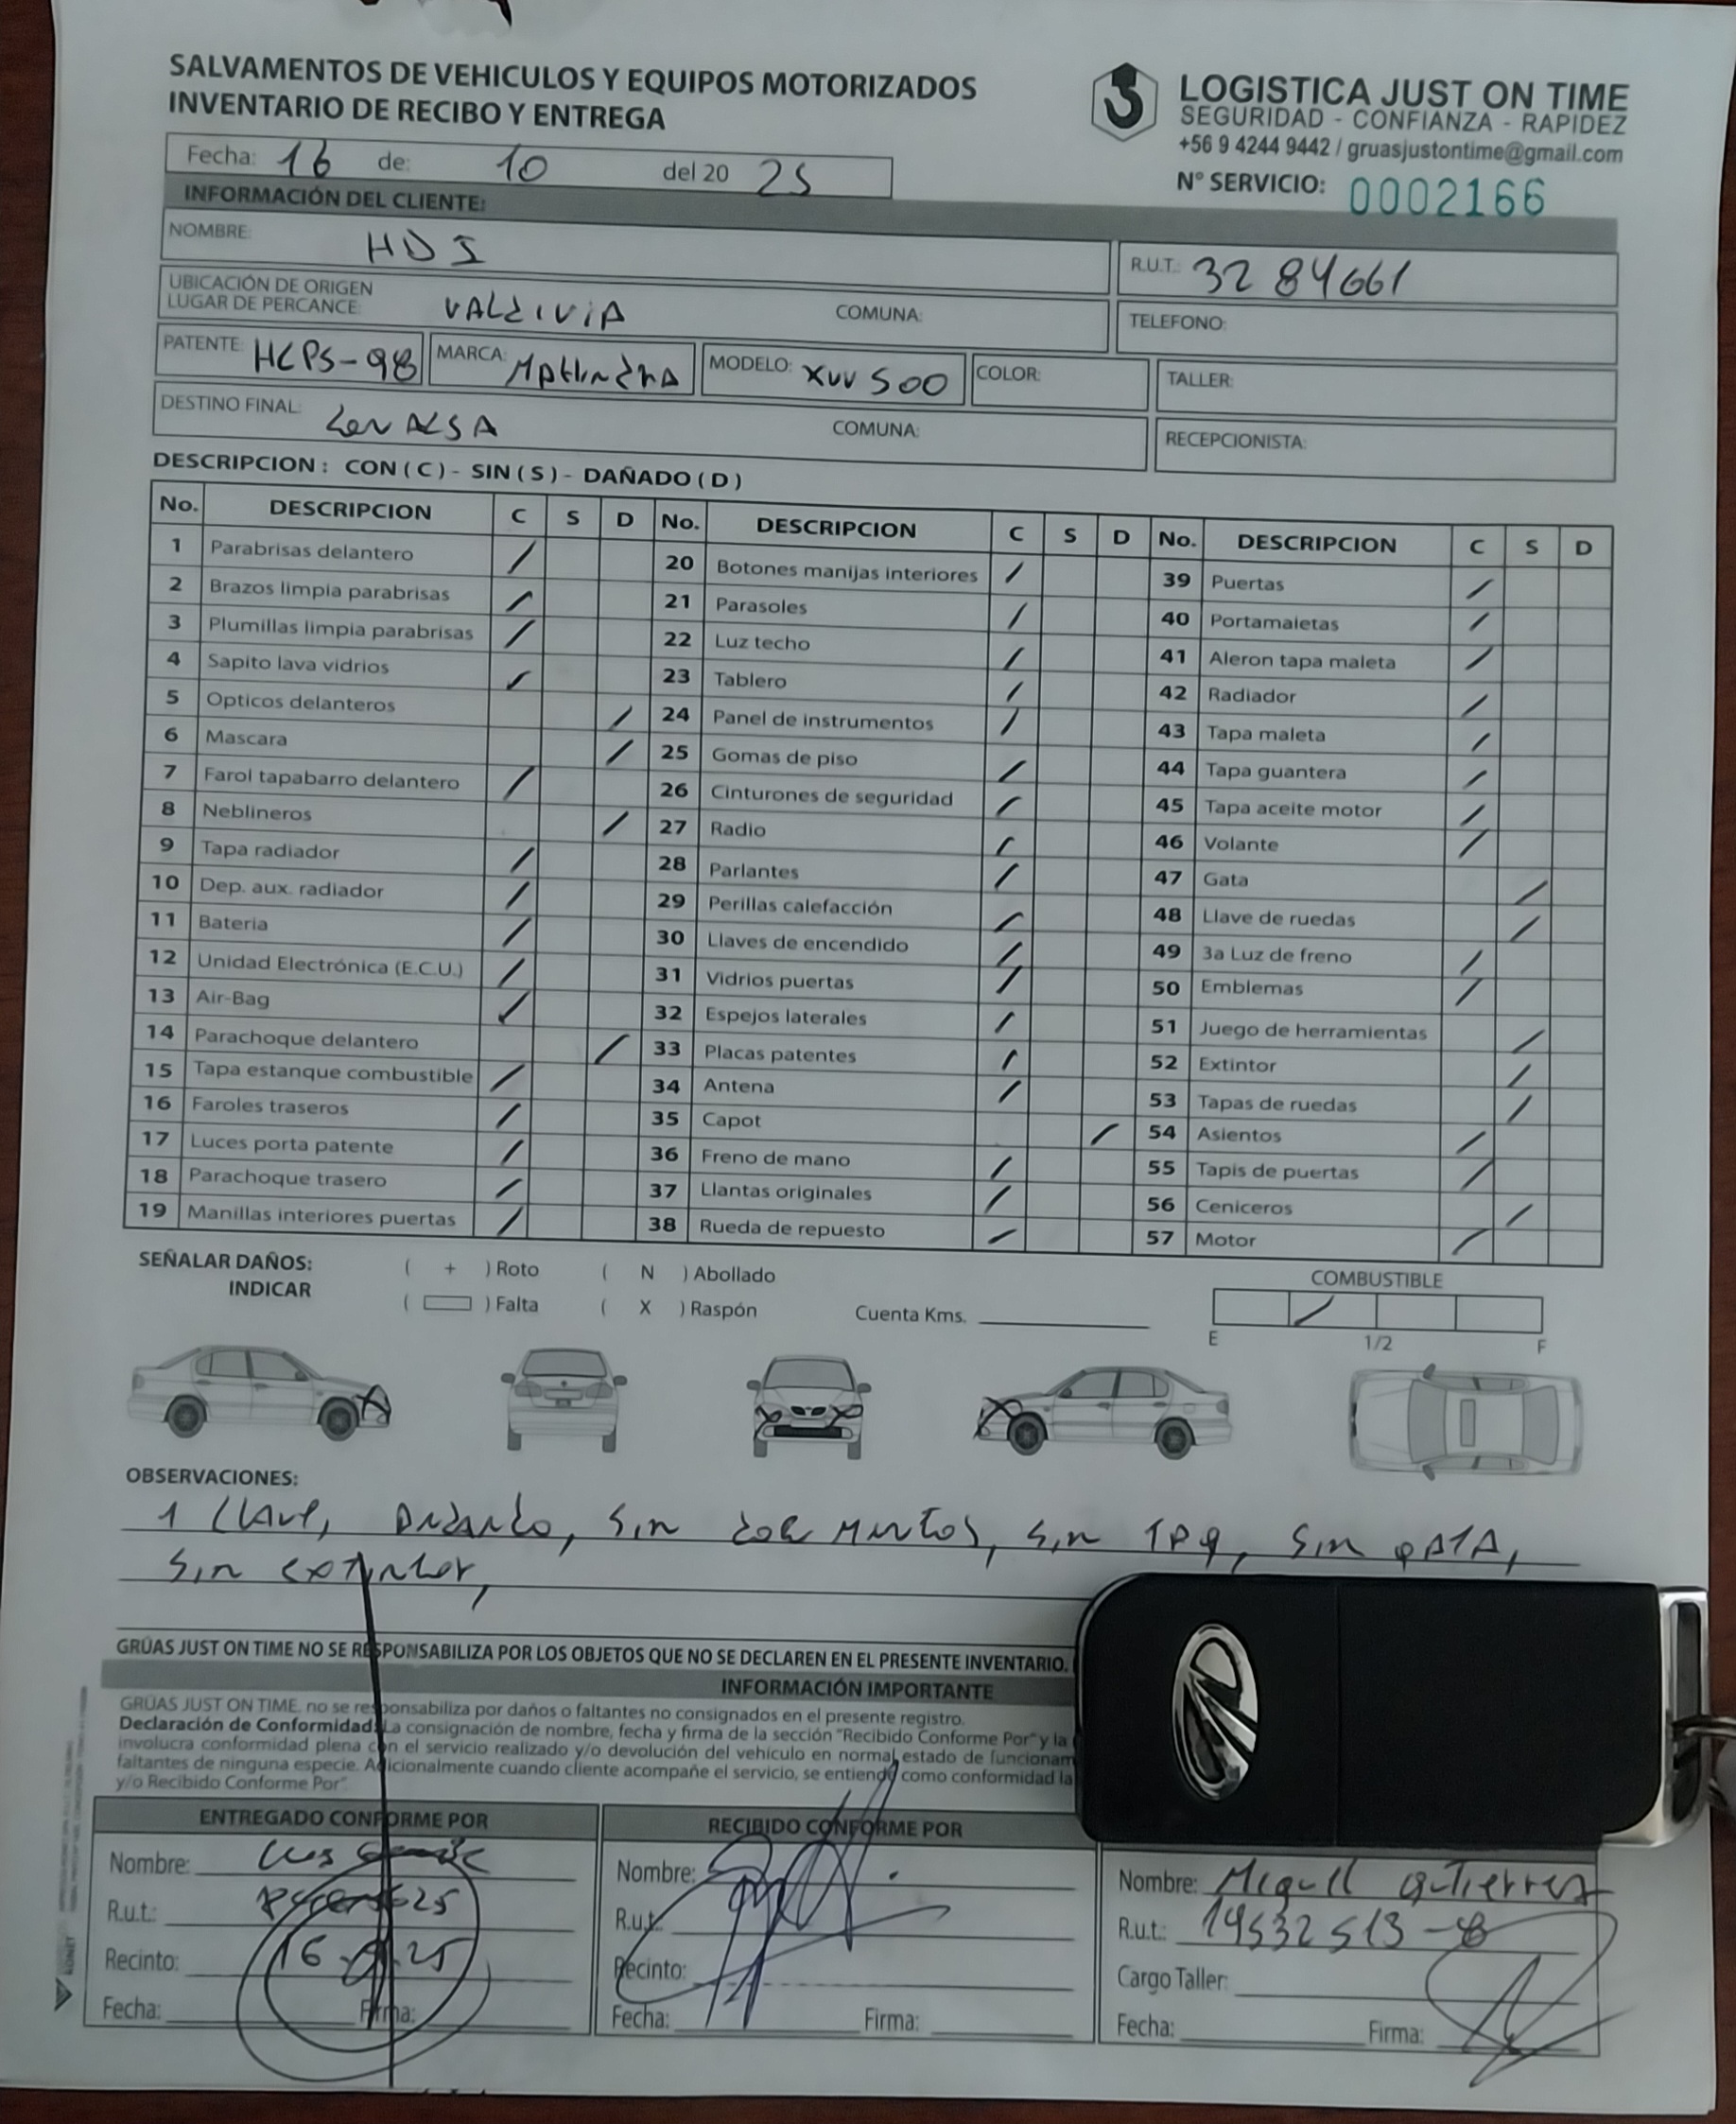 SALVAMENTOS DE VEHICULOS Y EQUIPOS MOTORIZADOS
INVENTARIO DE RECIBO Y ENTREGA
LOGISTICA JUST ON TIME
SEGURIDAD - CONFIANZA - RAPIDEZ
+56 9 4244 9442 / gruasjustontime@gmail.com
Fecha: 16 de: 10 del 20 25
N° SERVICIO: 0002166
INFORMACIÓN DEL CLIENTE:
NOMBRE: HDI R.U.T.: 3284661
UBICACIÓN DE ORIGEN
LUGAR DE PERCANCE: VALDIVIA COMUNA: TELEFONO:
PATENTE: HCPS-98 MARCA: MAHINDRA MODELO: XUV 500 COLOR: TALLER:
DESTINO FINAL: COMUNA: RECEPCIONISTA:
DESCRIPCION : CON ( C ) - SIN ( S ) - DAÑADO ( D )
No. DESCRIPCION C S D No. DESCRIPCION C S D No. DESCRIPCION C S D
1 Parabrisas delantero / 20 Botones manijas interiores / 39 Puertas /
2 Brazos limpia parabrisas / 21 Parasoles / 40 Portamaletas /
3 Plumillas limpia parabrisas / 22 Luz techo / 41 Aleron tapa maleta /
4 Sapito lava vidrios / 23 Tablero / 42 Radiador /
5 Opticos delanteros / 24 Panel de instrumentos / 43 Tapa maleta /
6 Mascara / 25 Gomas de piso / 44 Tapa guantera /
7 Farol tapabarro delantero / 26 Cinturones de seguridad / 45 Tapa aceite motor /
8 Neblineros / 27 Radio / 46 Volante /
9 Tapa radiador / 28 Parlantes / 47 Gata /
10 Dep. aux. radiador / 29 Perillas calefacción / 48 Llave de ruedas /
11 Bateria / 30 Llaves de encendido / 49 3a Luz de freno /
12 Unidad Electrónica (E.C.U.) / 31 Vidrios puertas / 50 Emblemas /
13 Air-Bag / 32 Espejos laterales / 51 Juego de herramientas /
14 Parachoque delantero / 33 Placas patentes / 52 Extintor /
15 Tapa estanque combustible / 34 Antena / 53 Tapas de ruedas /
16 Faroles traseros / 35 Capot / 54 Asientos /
17 Luces porta patente / 36 Freno de mano / 55 Tapis de puertas /
18 Parachoque trasero / 37 Llantas originales / 56 Ceniceros /
19 Manillas interiores puertas / 38 Rueda de repuesto / 57 Motor /
SEÑALAR DAÑOS: ( + ) Roto ( N ) Abollado COMBUSTIBLE
INDICAR ( ) Falta ( X ) Raspón Cuenta Kms.
E 1/2 F
OBSERVACIONES:
1 LLAVE, ANDANDO, Sin DOCUMENTOS, Sin TAG, Sin GATA,
Sin extintor,
GRÚAS JUST ON TIME NO SE RESPONSABILIZA POR LOS OBJETOS QUE NO SE DECLAREN EN EL PRESENTE INVENTARIO.
INFORMACIÓN IMPORTANTE
GRUAS JUST ON TIME. no se responsabiliza por daños o faltantes no consignados en el presente registro.
Declaración de Conformidad: La consignación de nombre, fecha y firma de la sección "Recibido Conforme Por" y la
involucra conformidad plena con el servicio realizado y/o devolución del vehículo en normal estado de funcionam
faltantes de ninguna especie. Adicionalmente cuando cliente acompañe el servicio, se entiende como conformidad la
y/o Recibido Conforme Por".
ENTREGADO CONFORME POR RECIBIDO CONFORME POR
Nombre: Luis Nombre: Nombre: Miguel Gutierrez
R.u.t.: R.u.t.: R.u.t.: 19532513-8
Recinto: Recinto: Cargo Taller:
Fecha: Firma: Fecha: Firma: Fecha: Firma: